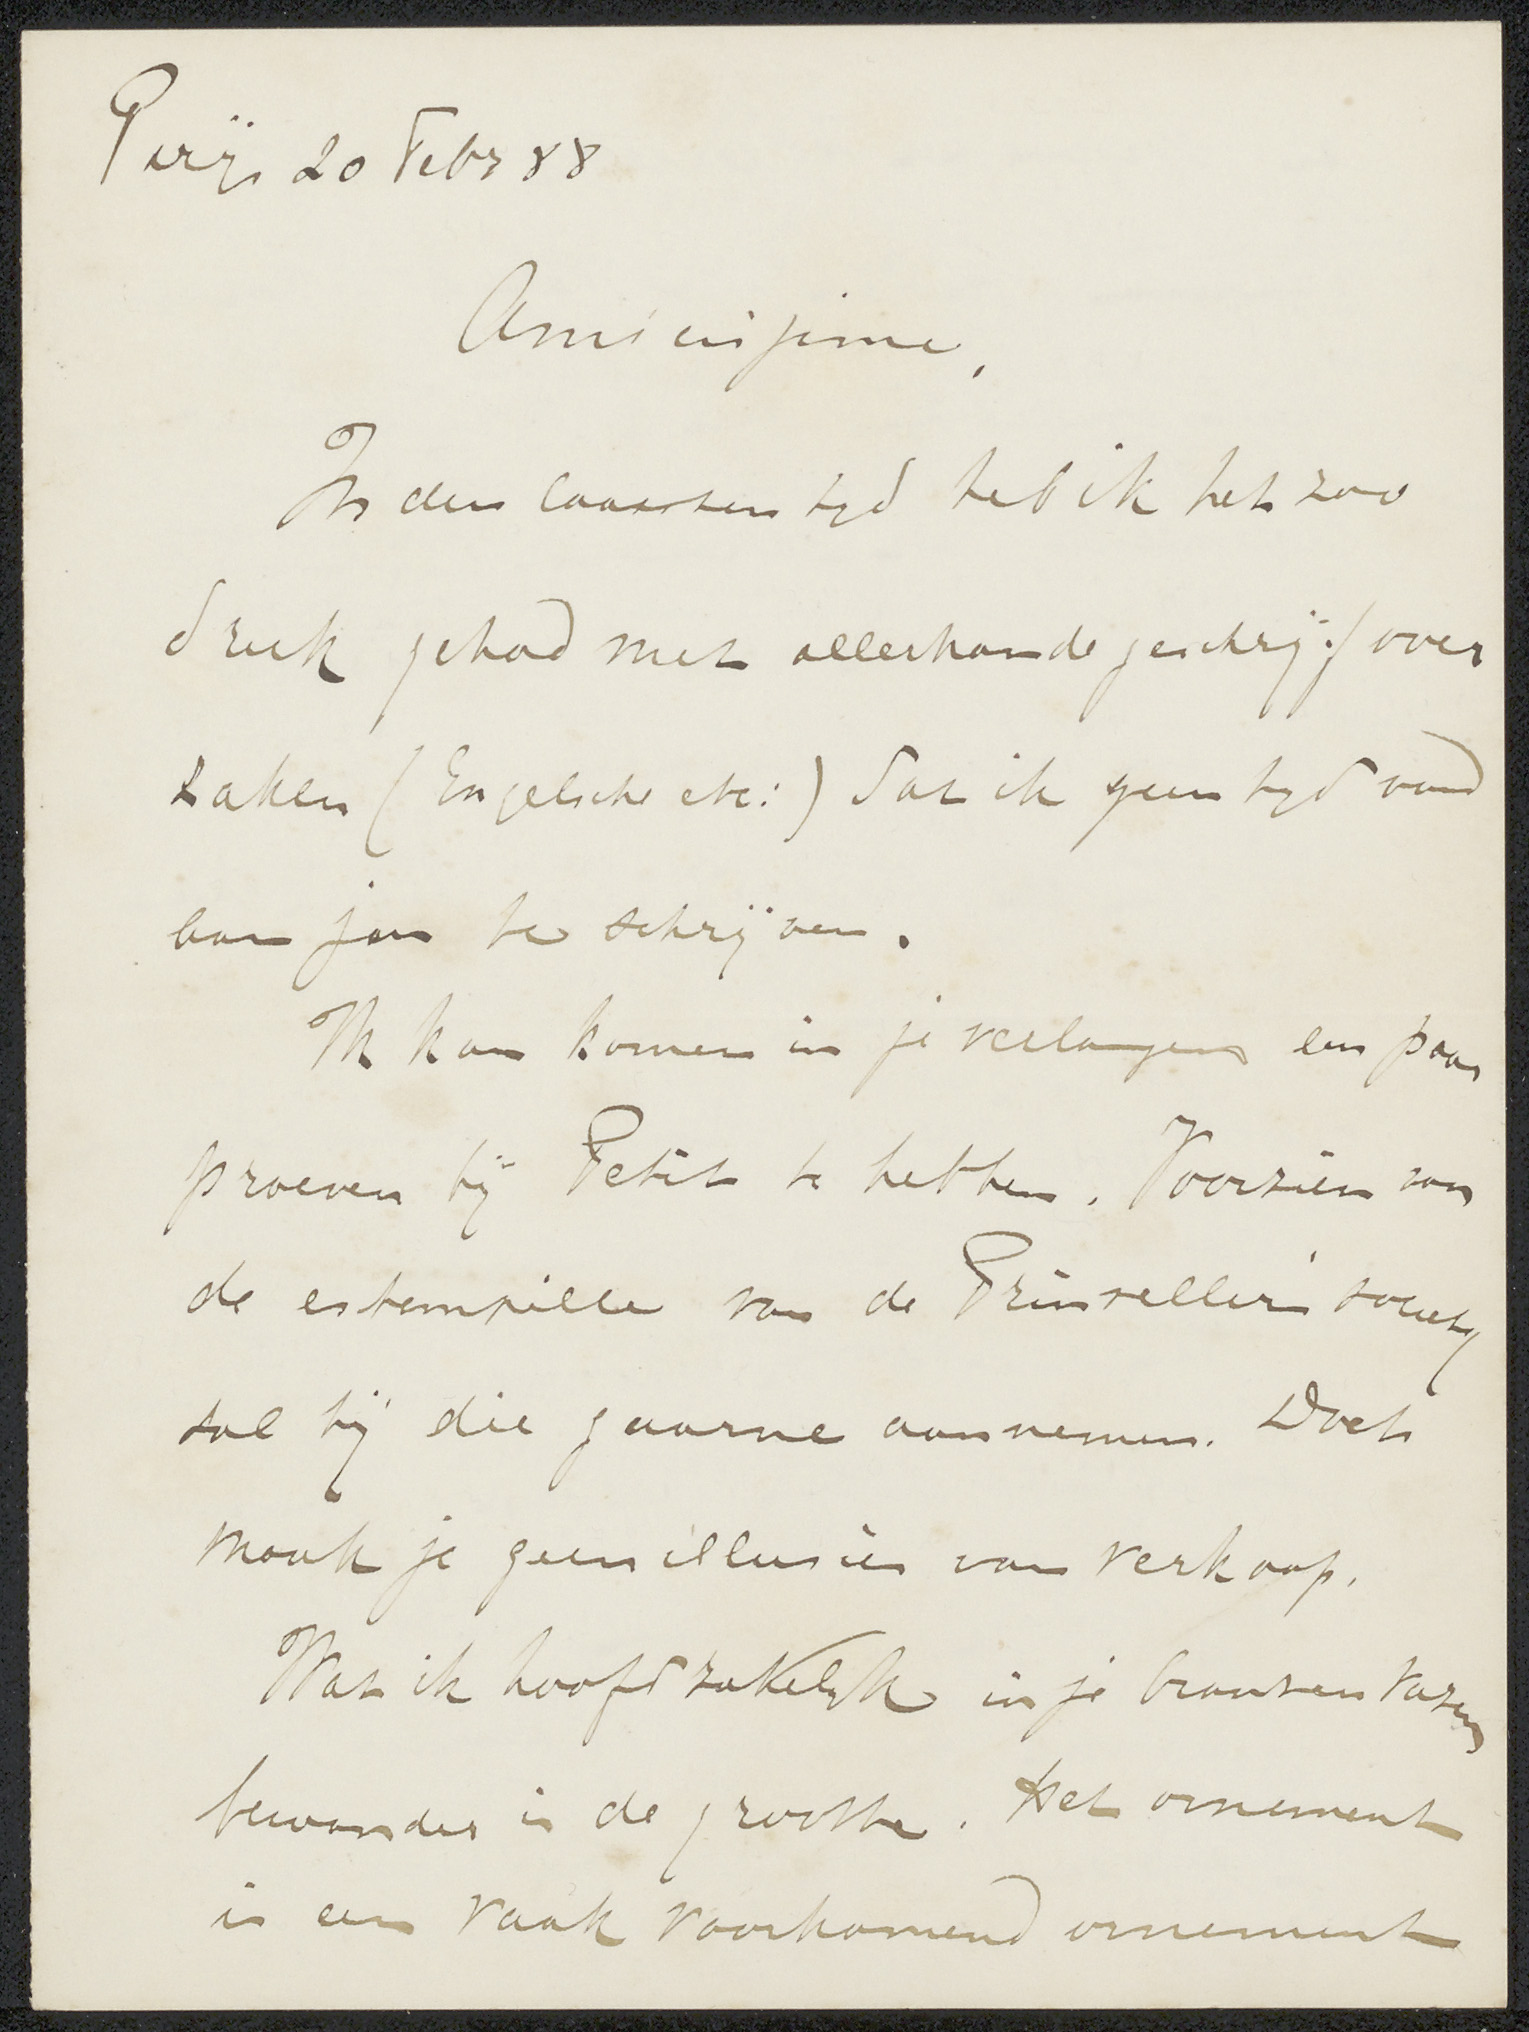 Parijs 20 Febr 88
Amicissime,
In den laatsten tyd heb ik het zoo
druk gehad met allerhande geschrijf over
zaken (Engelsche etc:) dat ik geen tyd vond
aan jou te schrijven.
Ik kan komen in je verlangen een paar
proeven bij Petit te hebben. Voorzien van
de estampille van de Prinsellers society
zal hij die gaarne aannemen. Doch
maak je geen illusies van verkoop.
Wat ik hoofdzakelyk in je bronzen vazen
bewonder is de grootte. Het ornement
is een vaak voorkomend ornement